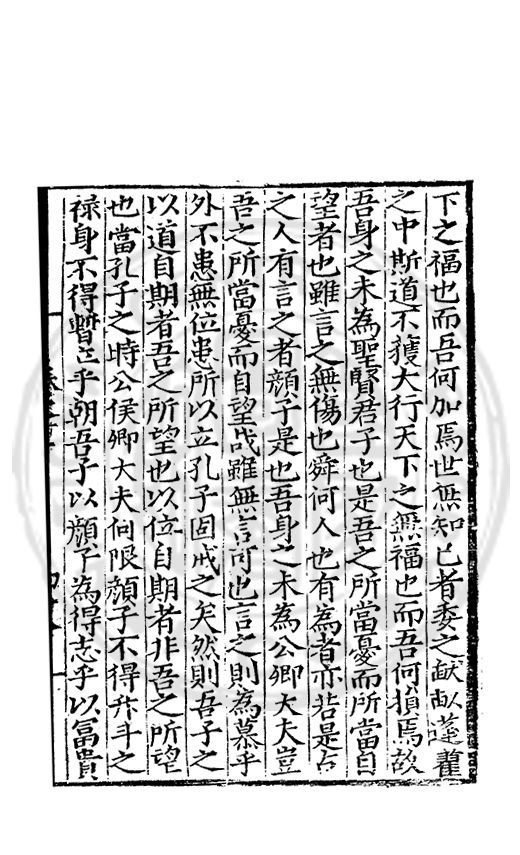 下之福也而吾何加焉世無知己者委之畎畝蓬藋
之中斯道不獲大行天下之無福也而吾何損焉故
吾身之未為聖賢君子也是吾之所當憂而所當自
望者也雖言之無傷也舜何人也有為者亦若是古
之人有言之者顔子是也吾身之未為公卿大夫豈
吾之所當憂而自望哉雖無言可也言之則為慕乎
外不患無位患所以立孔子固戒之矣然則吾子之
以道自期者吾之所望也以位自期者非吾之所望
也當孔子之時公侯卿大夫何限顔子不得升斗之
祿身不得暫立乎朝吾子以顔子為得志乎以富貴